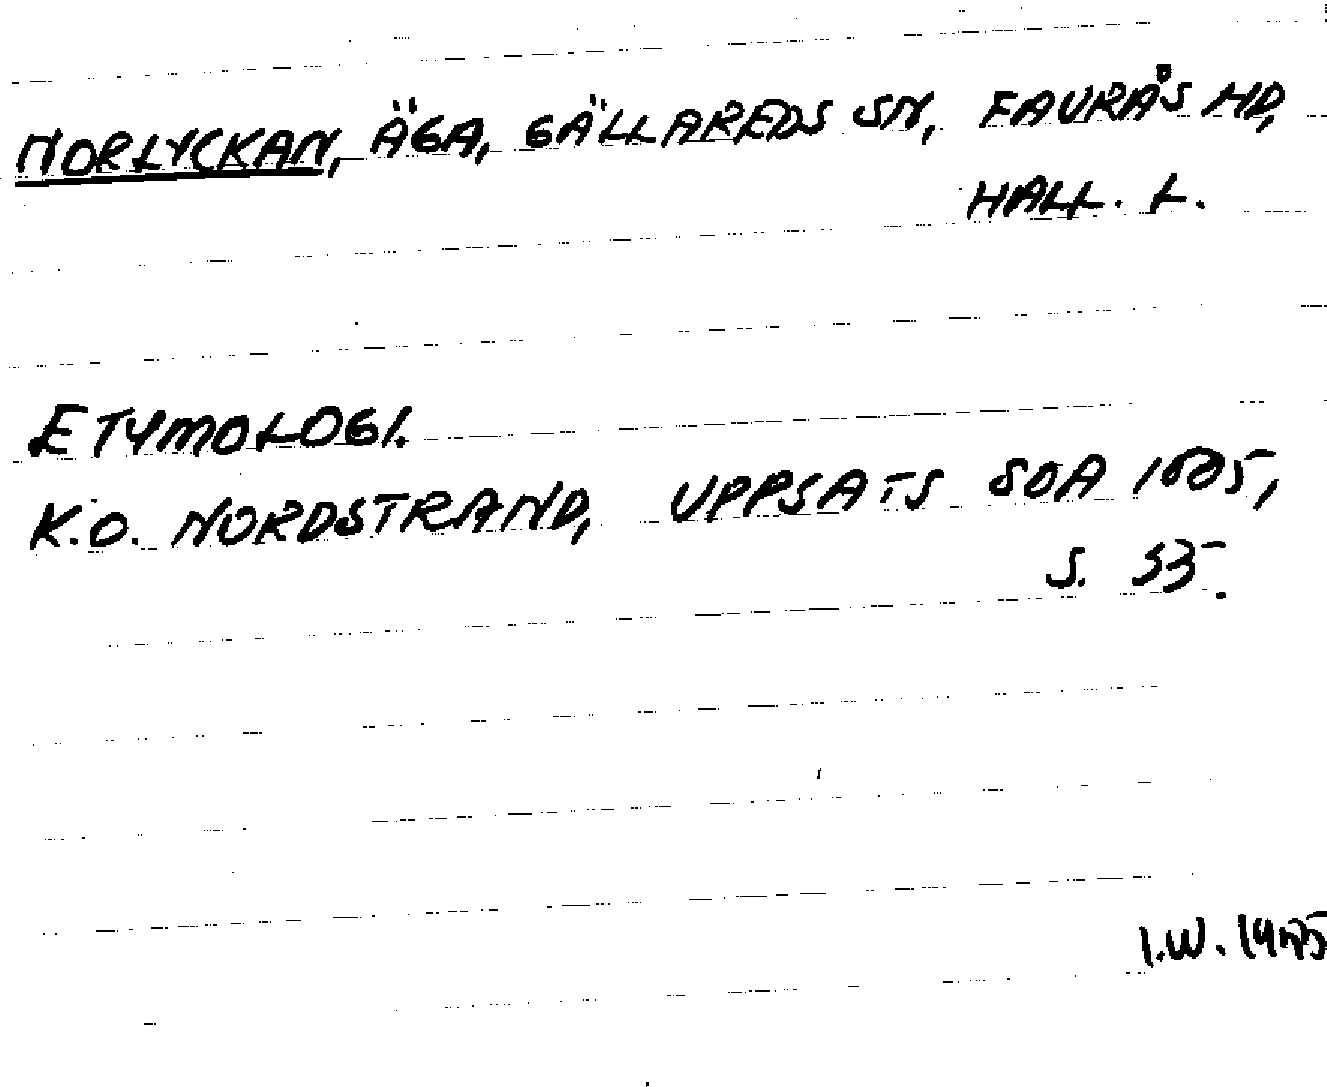 NORLYCKAN, ÄGA, GÄLLAREDS SN, FAURÅS HD,
HALL. L.
ETYMOLOGI.
K.O. NORDSTRAND, UPPSATS SOA
S.
I.W.